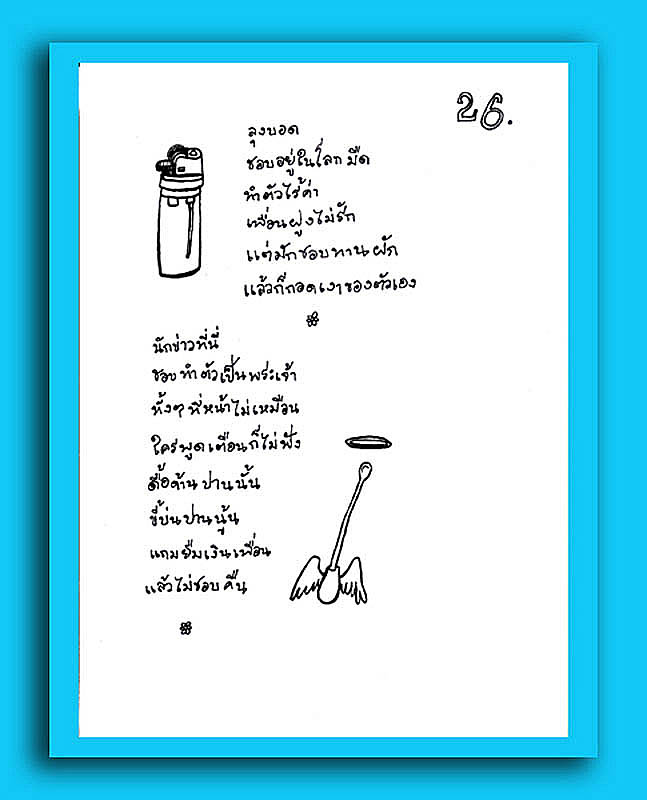 26.
ลุงบอด
ชอบอยู่ในโลกมืด
ทำตัวไร้ค่า
เพื่อนฝูงไม่รัก
แต่มักชอบทานผัก
แล้วก็กอดเงาของตัวเอง
นักข่าวที่นี่
ชอบทำตัวเป็นพระเจ้า
ทั้งๆ ที่หน้าไม่เหมือน
ใครพูดเตือนก็ไม่ฟัง
ดื้อด้านปานนั้น
ขี้บ่นปานนู้น
แถมยืมเงินเพื่อน
แล้วไม่ชอบคืน